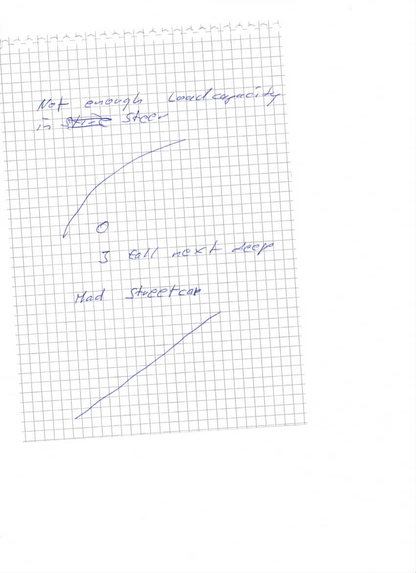 Not enough Loadcapacity
in Steer
0
3 fall next deep
Had Streetcar